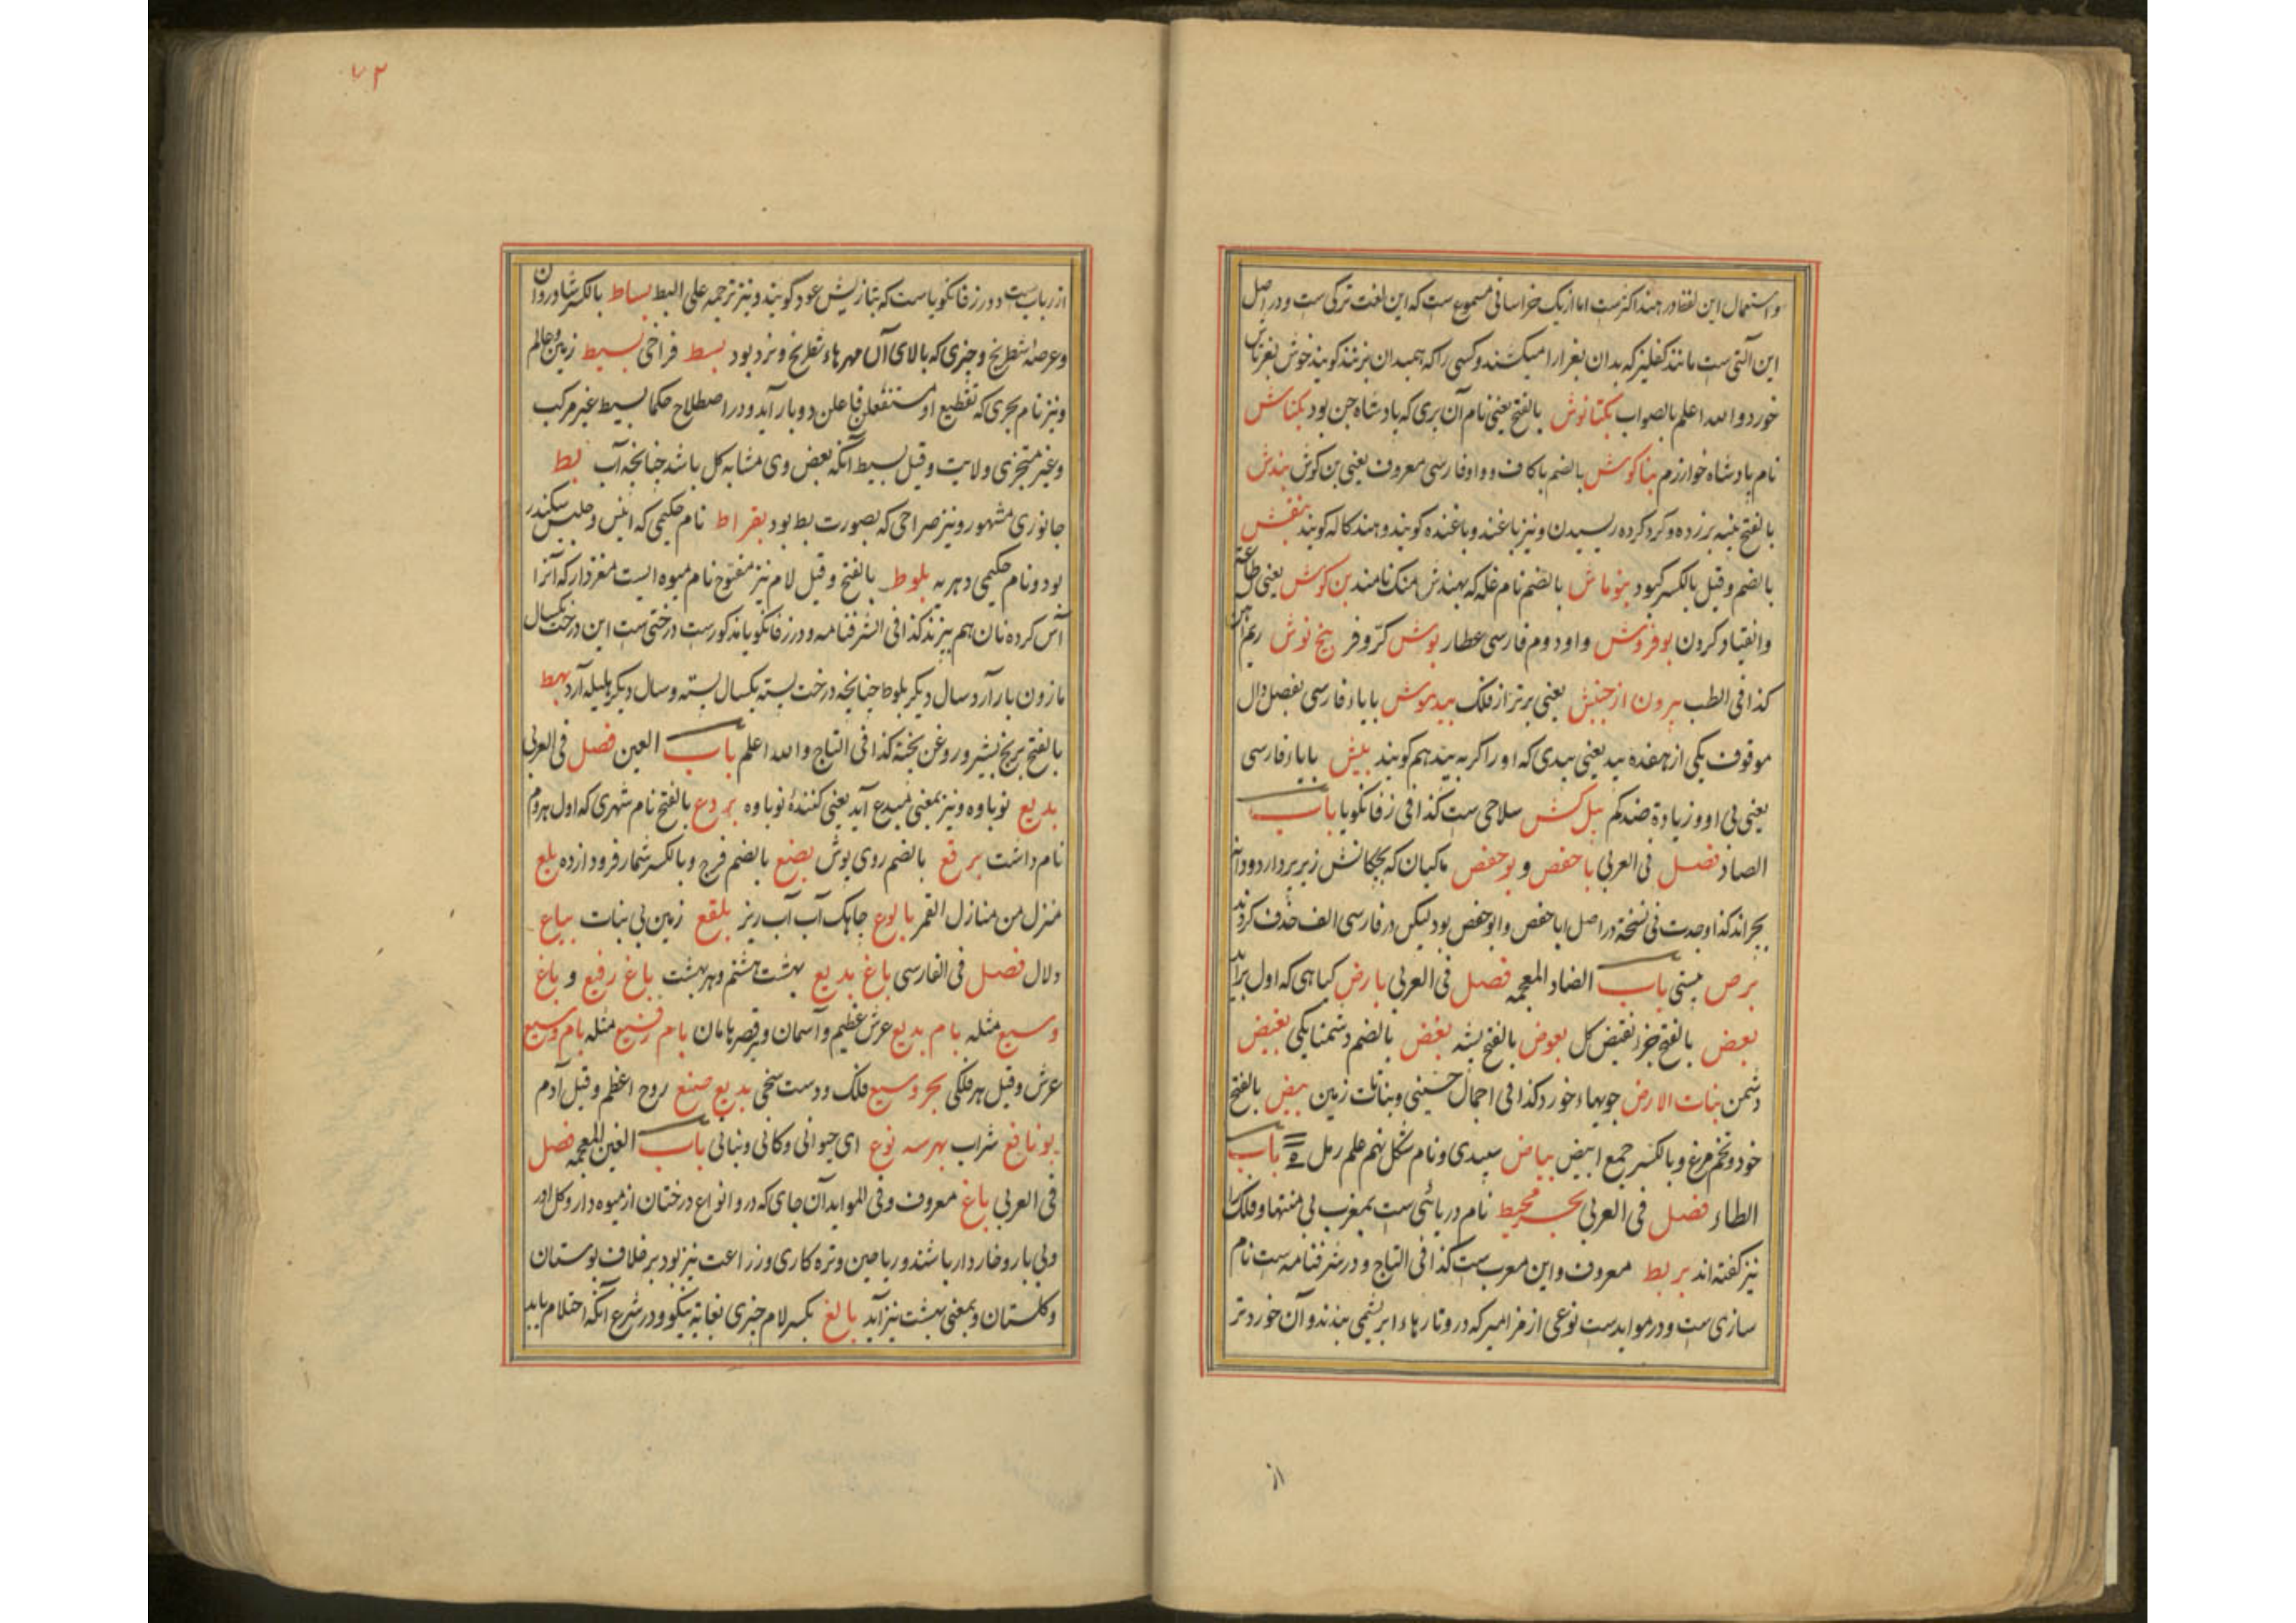 و استعمال این لفظ در هند اکثرست اما از یک خراسانی مسموع ست که این لغت ترکی ست و در اصل
این آلتی ست مانند کفلیز که بدان بغرا را میکشند و کسی را که بمیدان بزنند گویند خوش بغرتاش
خورد والله اعلم بالصواب بکتانوش بالفتح یعنی نام آن پری که پادشاه جن بود بکتاش
نام پادشاه خوارزم بناکوش بالضم با کاف و واو فارسی معروف یعنی بن گوش بندش
بالفتح پنبه برزده و گرد کرده ریسیدن و نیز باغند و باغنده گویند و هند کاله گویند بنفش
بالضم و قیل بالکسر کبود بنوماش بالضم نام غله که بهندش منک نامند بن کوش یعنی طاعت
وانقیاد کردن بوفروش واو دوم فارسی عطار بوش کرّ و فر بیخ نوش
کذا فی الطب بیرون از جنبش یعنی برتر از فلک بیدموش با یاء فارسی بفصل دال
موقوف یکی از هفده بید یعنی بیدی که او را گربه بید هم گویند بیش با یاء فارسی
یعنی بی او و زیادة ضد کم بیل کش سلاحی ست کذا فی زفانگویا باب
الصاد فصل فی العربی باحفص و بوحفص ماکیان که بچگانش زیر پر دارد و دانه
بچراند کذا وجدت فی نسخة در اصل اباحفص و ابوحفص بود لیکن در فارسی الف حذف کردند
برص پیسی باب الضاد المعجمه فصل فی العربی بارض کیاهی که اول برآید
بعض بالفتح جزء نقیض کل بعوض بالفتح پشه بغض بالضم دشمنایکی بغیض
دشمن بنات الارض جویهاء خورد کذا فی اجمال حسینی و بناتات زمین بیض بالفتح
خود و تخم مرغ و بالکسر جمع ابیض بیاض سپیدی و نام شکل نهم علم رمل باب
الطاء فصل فی العربی بحر محیط نام دریائی ست بمغرب بی منتها و فلک را
نیز گفته اند بربط معروف و این معرب ست کذا فی التاج و در شرفنامه ست نام
سازی ست و در مواید ست نوعی از مزامیر که درو تارهاء ابریشمی بندند و آن خوردتر
از
از رباب ست و در زفانگویاست که بتازیش عود گویند و نیز ترجمه علی البط بساط بالکسر شادروان
و عرصه شطرنج و چیزی که بالای آن مهرهاء شطرنج و نرد بود بسط فراخی بسیط زمین و عالم
و نیز نام بحری که تقطیع او مستفعلن فاعلن دوبار آید و در اصطلاح حکما بسیط غیر مرکب
و غیر متجزی و لایت و قیل بسیط آنکه بعض وی مشابه کل باشد چنانچه آب بط
جانوری مشهور و نیز صراحی که بصورت بط بود بقراط نام حکیمی که انیس و جلیس سکندر
بود و نام حکیمی دهریه بلوط بالفتح و قیل لام نیز مفتوح نام میوه ایست مغزدار که آنرا
آس کرده نان هم پزند کذا فی الشرفنامه و در زفانگویا مذکورست درختی ست این درخت یکسال
مازون بار آرد و سال دیگر بلوط چنانچه درخت پسته یکسال پسته و سال دیگر بلیله آرد بهط
بالفتح برنج بشیر و روغن پخته کذا فی التاج والله اعلم باب العین فصل فی العربی
بدیع نوباوه و نیز بمعنی مبدع آید یعنی کنندهٔ نوباوه بردع بالفتح نام شهری که اول هروم
نام داشت برقع بالضم روی پوش بضع بالضم فرج و بالکسر شمار فرود از ده بلع
منزل من منازل القمر بالوع چاهک آب آب ریز بلقع زمین بی نبات بیاع
دلال فصل فی الفارسی باغ بدیع بهشت هشتم و هر بهشت باغ رفیع و باغ
وسیع مثله بام بدیع عرش عظیم و آسمان و قصر هامان بام رفیع مثله بام وسیع
عرش و قیل هر فلکی بحر وسیع فلک و دست سخی بدیع صنع روح اعظم و قیل آدم
بونافع شراب بهرسه نوع ای حیوانی و کانی و نباتی باب الغین المعجمه فصل
فی العربی باغ معروف و فی المواید آن جای که درو انواع درختان از میوه دار و گل آور
و بی بار و خاردار باشند و ریاحین و تره کاری و زراعت نیز بود بر خلاف بوستان
و گلستان و بمعنی بهشت نیز آید بالغ بکسر لام چیزی بغایة نیکو و در شرع آنکه احتلام یابد